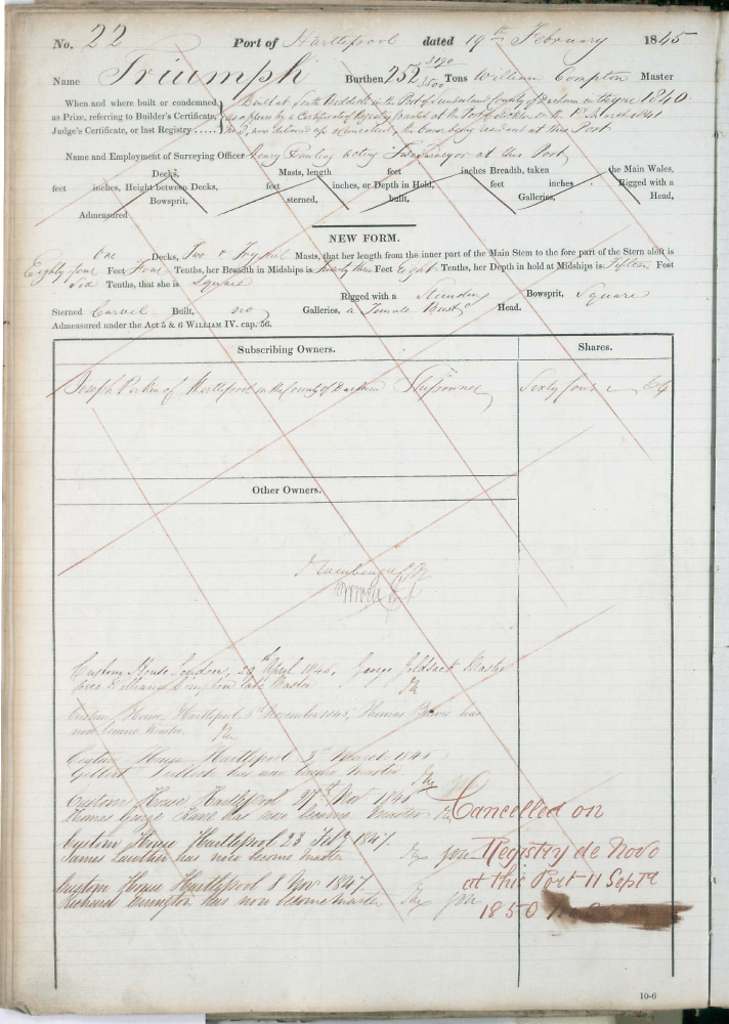 No. 22 Port of Hartlepool dated 19th February 1845
Name Triumph Burthen 252 Tons William Compton Master
When and where built or condemned as Prize, referring to Builder's Certificate, Judge's Certificate, or last Registry Built at in the Port of Sunderland County of Durham in the year 1840
as appears by a Certificate of Registry granted at the Port of 1841
at this Port
Name and Employment of Surveying Officer Henry acting Tide Surveyor at this Port
Decks, Masts, length feet inches Breadth, taken the Main Wales,
feet inches, Height between Decks, feet inches, or Depth in Hold, feet inches Rigged with a
Bowsprit, sterned, built, Galleries, Head,
Admeasured
NEW FORM.
One Decks, Two & Masts, that her length from the inner part of the Main Stem to the fore part of the Stern aloft is
Eighty four Feet Four Tenths, her Breadth in Midships is Twenty three Feet Eight Tenths, her Depth in hold at Midships is Fifteen Feet
Six Tenths, that she is Square
Rigged with a Standing Bowsprit, Square
Sterned Carvel Built, no Galleries, a Female Bust Head.
Admeasured under the Act 5 & 6 WILLIAM IV. cap. 56.
Subscribing Owners. Shares.
Joseph of Hartlepool in the County of Durham Shipowner Sixty four 64
Other Owners.
Custom House London, April 1845, George Goldsack Master
vice William Compton late Master
Custom House, Hartlepool November 1845, Thomas has
now become Master
Custom House Hartlepool March 184
Gilbert has now become Master
Custom House Hartlepool 27th Nov 184
Thomas George has now become Master
Custom House Hartlepool 23 Feby 1847.
James has now become Master
Custom House Hartlepool 8 Nov 1847
Richard has now become Master
Cancelled on
Registry de Novo
at this Port 11 Septr
1850
10-6